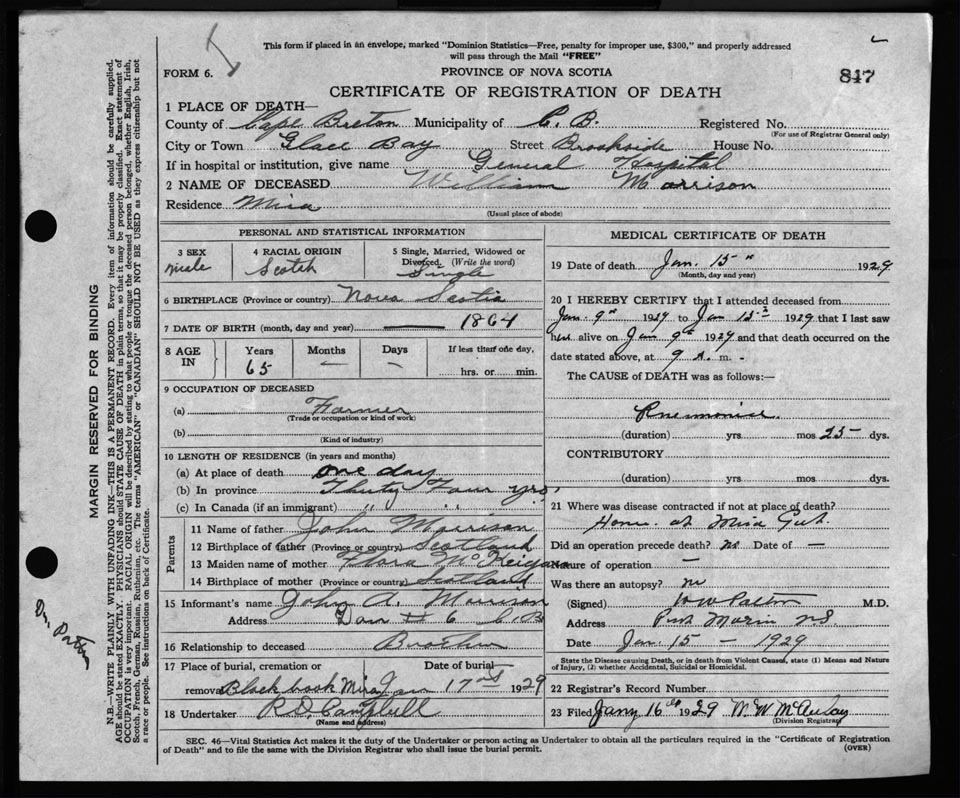 This form if placed in an envelope, marked "Dominion Statistics—Free, penalty for improper use, $300," and properly addressed
will pass through the Mail "FREE"
FORM 6.
PROVINCE OF NOVA SCOTIA
847
CERTIFICATE OF REGISTRATION OF DEATH
1 PLACE OF DEATH—
County of Cape Breton Municipality of C. B. Registered No.
(For use of Registrar General only)
City or Town Glace Bay Street Brookside House No.
If in hospital or institution, give name General Hospital
2 NAME OF DECEASED William Morrison
Residence Mira
(Usual place of abode)
PERSONAL AND STATISTICAL INFORMATION
3 SEX
male
4 RACIAL ORIGIN
Scotch
5 Single, Married, Widowed or
Divorced. (Write the word)
Single
6 BIRTHPLACE (Province or country) Nova Scotia
7 DATE OF BIRTH (month, day and year) — 1864
8 AGE IN
Years Months Days If less than one day,
65 — — hrs. or min.
9 OCCUPATION OF DECEASED
(a) Farmer
(Trade or occupation or kind of work)
(b)
(Kind of industry)
10 LENGTH OF RESIDENCE (in years and months)
(a) At place of death one day
(b) In province Thirty Four yrs,
(c) In Canada (if an immigrant) " " "
Parents
11 Name of father John Morrison
12 Birthplace of father (Province or country) Scotland
13 Maiden name of mother Flora McKeigan
14 Birthplace of mother (Province or country) Scotland
15 Informant's name John A. Morrison
Address Dom # 6 C.B
16 Relationship to deceased Brother
17 Place of burial, cremation or Date of burial
removal Black brook Mira Jan 17 1929
18 Undertaker R.D. Campbell
(Name and address)
MEDICAL CERTIFICATE OF DEATH
19 Date of death Jan. 15" 1929
(Month, day and year)
20 I HEREBY CERTIFY that I attended deceased from
Jan. 9th 1929 to Jan 1929 that I last saw
him alive on Jan 9th 1929 and that death occurred on the
date stated above, at 9 A. m. -
The CAUSE of DEATH was as follows:—
Pneumonia.
(duration) yrs mos 25 dys.
CONTRIBUTORY
(duration) yrs mos dys.
21 Where was disease contracted if not at place of death?
Home at Mira Gut.
Did an operation precede death? no Date of —
Nature of operation —
Was there an autopsy? no
(Signed) M.D.
Address Port Morien NS
Date Jan. 15 – 1929
State the Disease causing Death, or in death from Violent Causes, state (1) Means and Nature
of Injury, (2) whether Accidental, Suicidal or Homicidal.
22 Registrar's Record Number
23 Filed Jany 16th 1929 W. W McAulay
(Division Registrar)
SEC. 46—Vital Statistics Act makes it the duty of the Undertaker or person acting as Undertaker to obtain all the particulars required in the "Certificate of Registration
of Death" and to file the same with the Division Registrar who shall issue the burial permit.
(OVER)
MARGIN RESERVED FOR BINDING
N.B.—WRITE PLAINLY WITH UNFADING INK—THIS IS A PERMANENT RECORD. Every item of information should be carefully supplied.
AGE should be stated EXACTLY. PHYSICIANS should STATE CAUSE OF DEATH in plain terms, so that it may be properly classified. Exact statement of
OCCUPATION is very important. RACIAL ORIGIN will be described by stating to what people or tongue the deceased person belonged, whether English, Irish,
Scotch, French, German, Russian, Ruthenian, etc. The terms "AMERICAN" or "CANADIAN" SHOULD NOT BE USED as they express citizenship but not
a race or people. See instructions on back of Certificate.